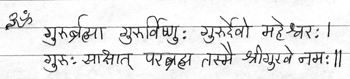 ॐ
गुरुर्ब्रह्मा गुरुर्विष्णुः गुरुर्देवो महेश्वरः।
गुरुः साक्षात् परब्रह्म तस्मै श्रीगुरवे नमः॥